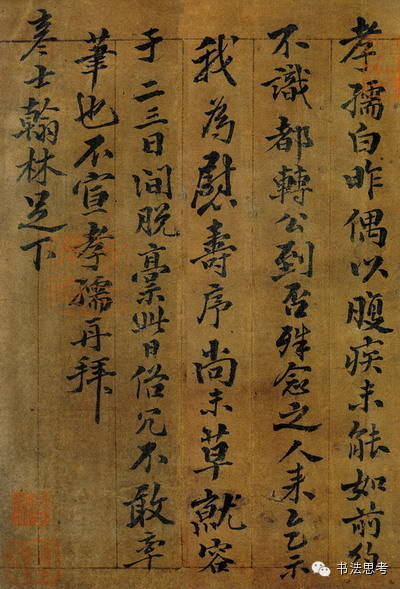 孝孺白昨偶以腹疾未能如前約
不識都轉公到否殊念之人来乞示
我為慰壽序尚未草就容
于二三日间脱稾此日俗冗不敢率
筆也不宣孝孺再拜
彦士翰林足下
书法思考